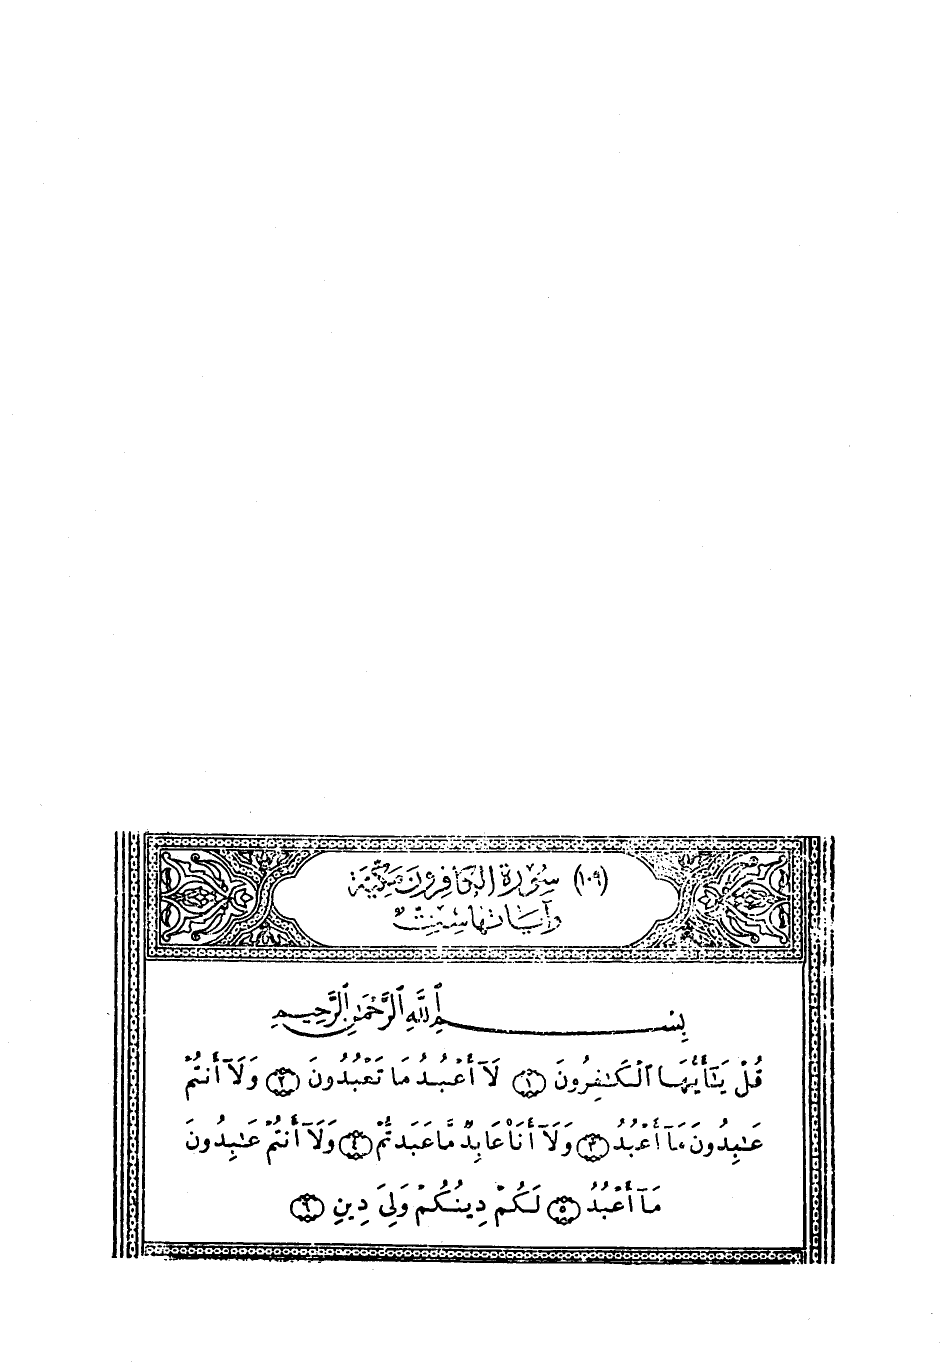 (١٠٩) سُورَةُ الكَافِرُونَ مَكِّيَّة
وَآيَاتُهَا سِتٌّ
بِسْمِ ٱللَّهِ ٱلرَّحْمَٰنِ ٱلرَّحِيمِ
قُلْ يَٰٓأَيُّهَا ٱلْكَٰفِرُونَ ۝١ لَآ أَعْبُدُ مَا تَعْبُدُونَ ۝٢ وَلَآ أَنتُمْ
عَٰبِدُونَ مَآ أَعْبُدُ ۝٣ وَلَآ أَنَا۠ عَابِدٌ مَّا عَبَدتُّمْ ۝٤ وَلَآ أَنتُمْ عَٰبِدُونَ
مَآ أَعْبُدُ ۝٥ لَكُمْ دِينُكُمْ وَلِىَ دِينِ ۝٦